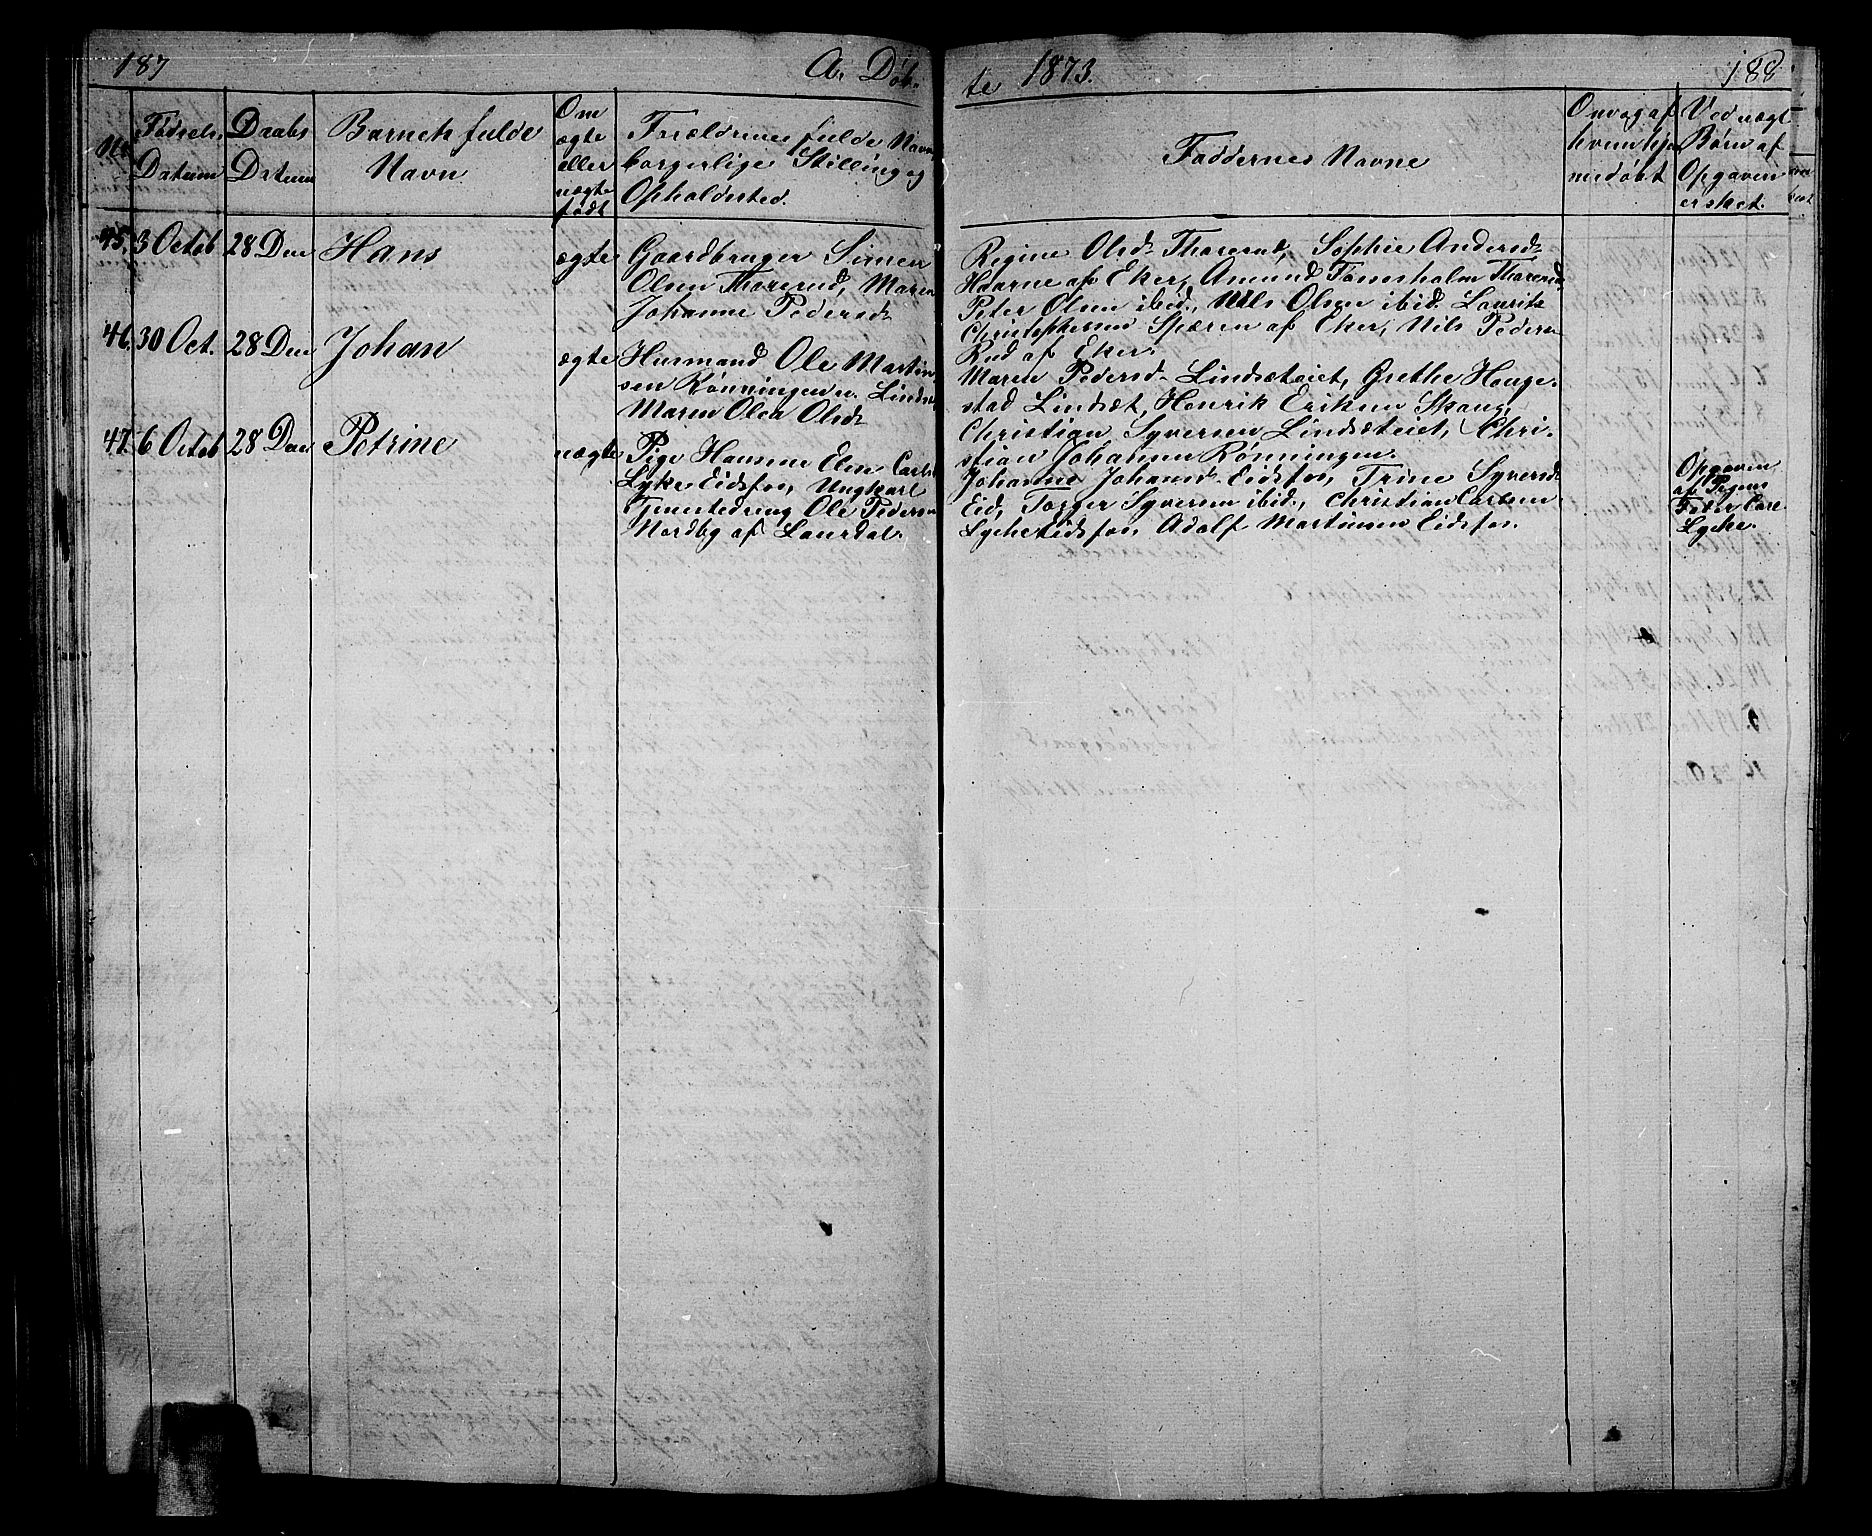 187
A. Døb-
te 1873.
188
No
Fødsels
Datum
Daabs
Datum
Barnets fulde
Navn
Om
ægte
eller
uægte
født
Forældrenes fulde Navn
borgerlige Stilling og
Opholdssted.
Faddernes Navne
Om og af
hvem hje
medøbt
Ved uægt
Børn af
Opgaven
er skeet.
45. 3 Octob 28 Dec Hans ægte
Gaardbruger Simen
Olsen Thorerud, Maren
Johanne Pedersd
Regine Olsd Thorerud, Sophie Andersd
Haarne af Eker, Amund Tomsholm Thorerud
Peter Olsen ibid., Nils Olsen ibid. Laurits
Christophersen Spæren af Eker, Nils Peders
Rud af Eker.
46. 30 Oct. 28 Dec Johan ægte
Husmand Ole Martin
sen Rønningen u. Linds
Maren Olea Olsd
Maren Pedersd Lindsæteiet, Grethe Houge-
stad Lindsæt, Henrik Eriksen Skaug,
Christian Syversen Lindsæteiet, Chri-
stian Johannen Rønningen.
47. 6 Octob 28 Dec Petrine uægte
Pige Hansine Elen Carls
Lyke Eidsfos, Ungkarl
Tjenestedreng Ole Peders
Nordby af Laurdal.
Johanne Johansd Eidsfos, Trine Syversd
Eid, Torger Syversen ibid., Christian Carlsen
Lyche Eidsfos, Adolf Martinsen Eidsfos.
Opgaven
af Pigens
Fader Carl
Lyche.